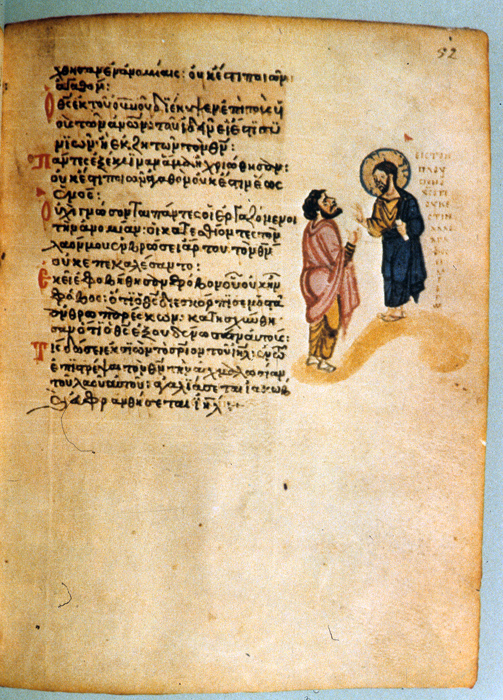 χθησαν ἐν ἀνομίαις: οὐκ ἔστι ποιῶν
ἀγαθόν:
Ὁ θς ἐκ τοῦ οὐνοῦ διέκυψεν ἐπὶ τοὺς ὑ
οὺς τῶν ἀνων: τοῦ ἰδεῖν εἰ ἔστι συ
νίων ἢ ἐκζητῶν τὸν θν:
Πάντες ἐξέκλιναν ἅμα ἠχριώθησαν:
οὐκ ἔστι ποιῶν ἀγαθὸν οὐκ ἔστιν ἕως
ἑνός:
Οὐχὶ γνώσονται πάντες οἱ ἐργαζόμενοι
τὴν ἀνομίαν: οἱ κατεσθίοντες τὸν
λαόν μου ἐν βρώσει ἄρτου τὸν θν
οὐκ ἐπεκαλέσαντο:
Ἐκεῖ ἐφοβήθησαν φόβον οὗ οὐκ ἦν
φόβος: ὅτι ὁ θς διεσκόρπισεν ὀστᾶ
ἀνθρωπαρέσκων: κατησχύνθη
σαν ὅτι ὁ θς ἐξουδένωσεν αὐτούς:
Τίς δώσει ἐκ σιὼν τὸ σριον τοῦ ιηλ: ἐν τῶ
ἐπιστρέψαι τὸν θν τὴν αἰχμαλωσίαν
τοῦ λαοῦ αὐτοῦ: ἀγαλιάσεται ἰακὼβ
καὶ εὐφρανθήσεται ιηλ:
52
ΕΙΣ ΤΟΝ
ΠΛΟΥ